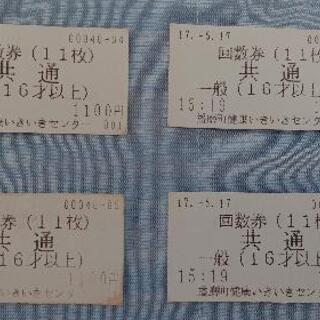 00040-04
数券(11枚)
共通
(16才以上)
1100円
いきいきセンター 001
17.-5.17 00
回数券(11
共通
一般(16才以上
15:19
播磨町健康いきいきセン
00040-05
券(11枚)
共通
16才以上)
1100円
いきいきセンタ
17.-5.17
回数券(11
共通
一般(16才以上
15:19
播磨町健康いきいきセン